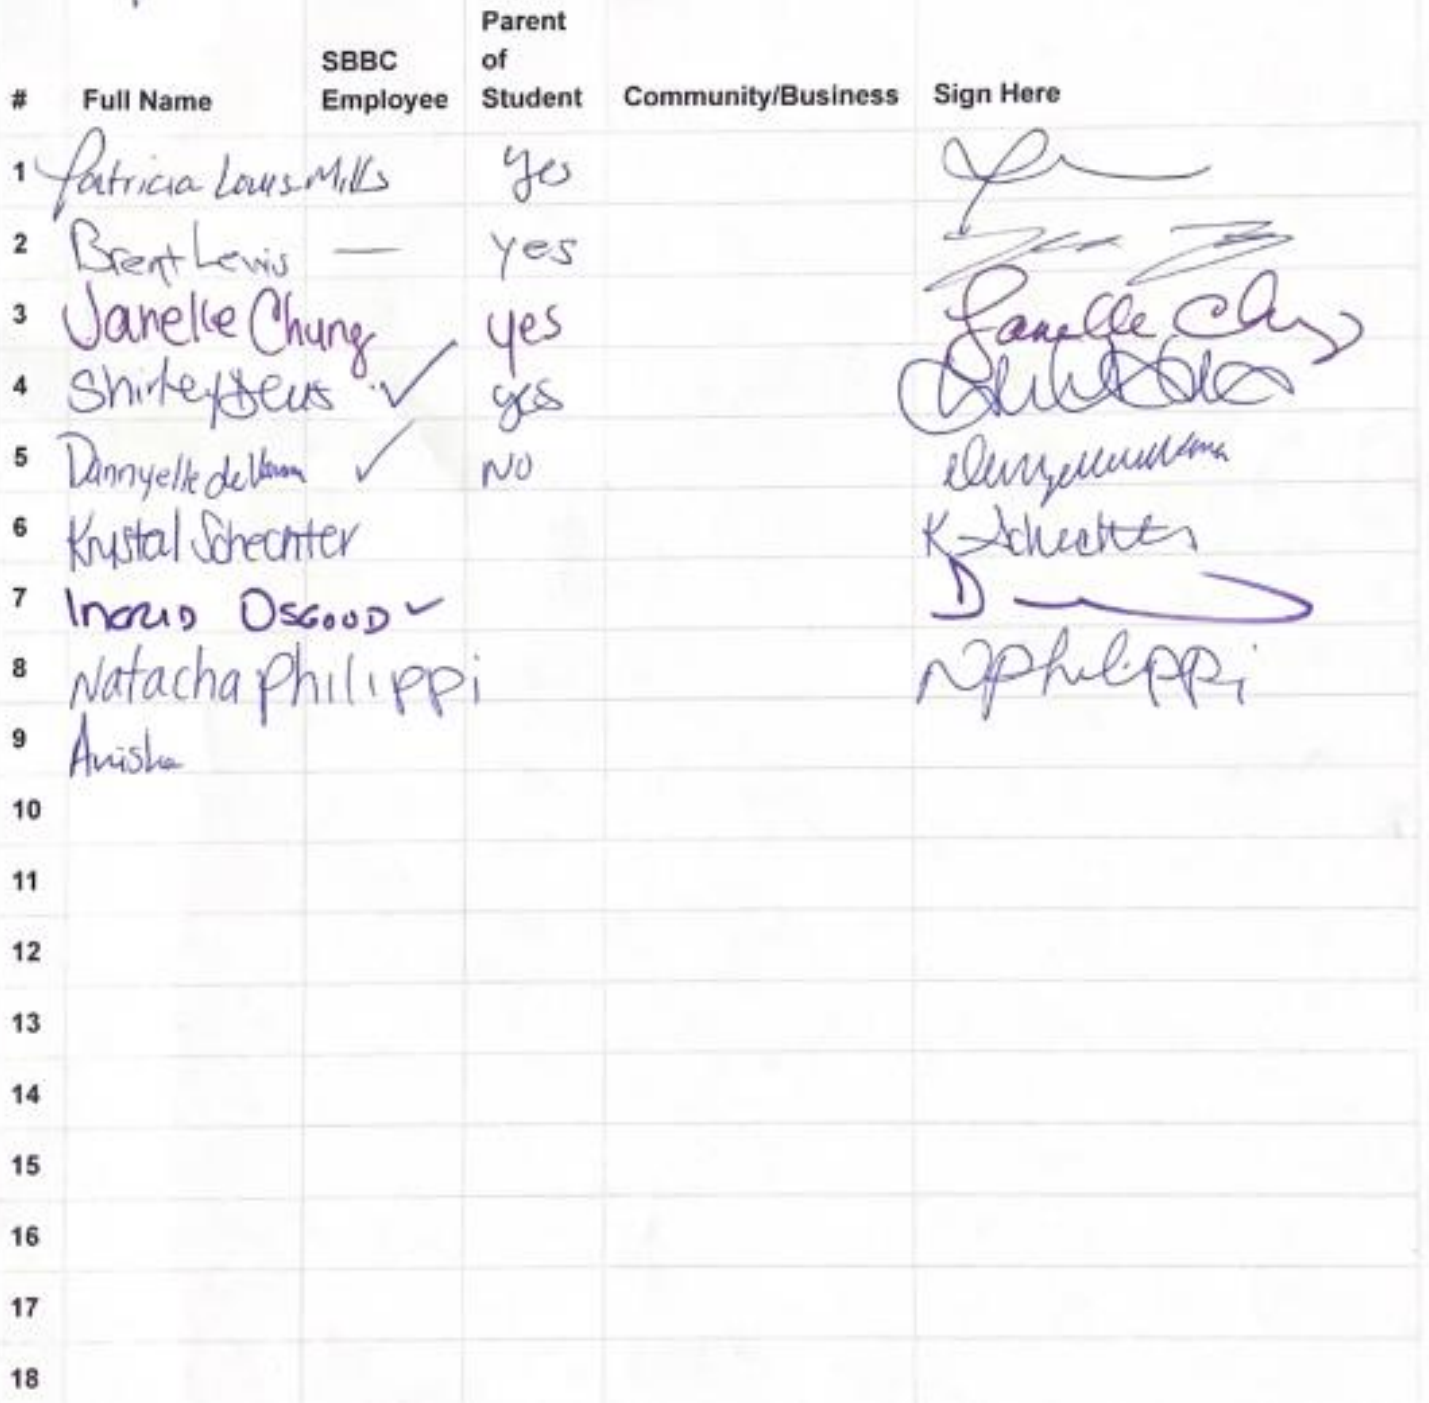 Parent
SBBC of
# Full Name Employee Student Community/Business Sign Here
1 Patricia Louis Mills Yes
2 Brent Lewis — yes
3 Janelle Chung yes Janelle Chung
4 Shirley Deus ✓ yes
5 Dannyelle de ✓ NO
6 Krystal Schechter K Schechter
7 INGRID OSGOOD ✓
8 Natacha Philippi NPhilippi
9 Anisha
10
11
12
13
14
15
16
17
18